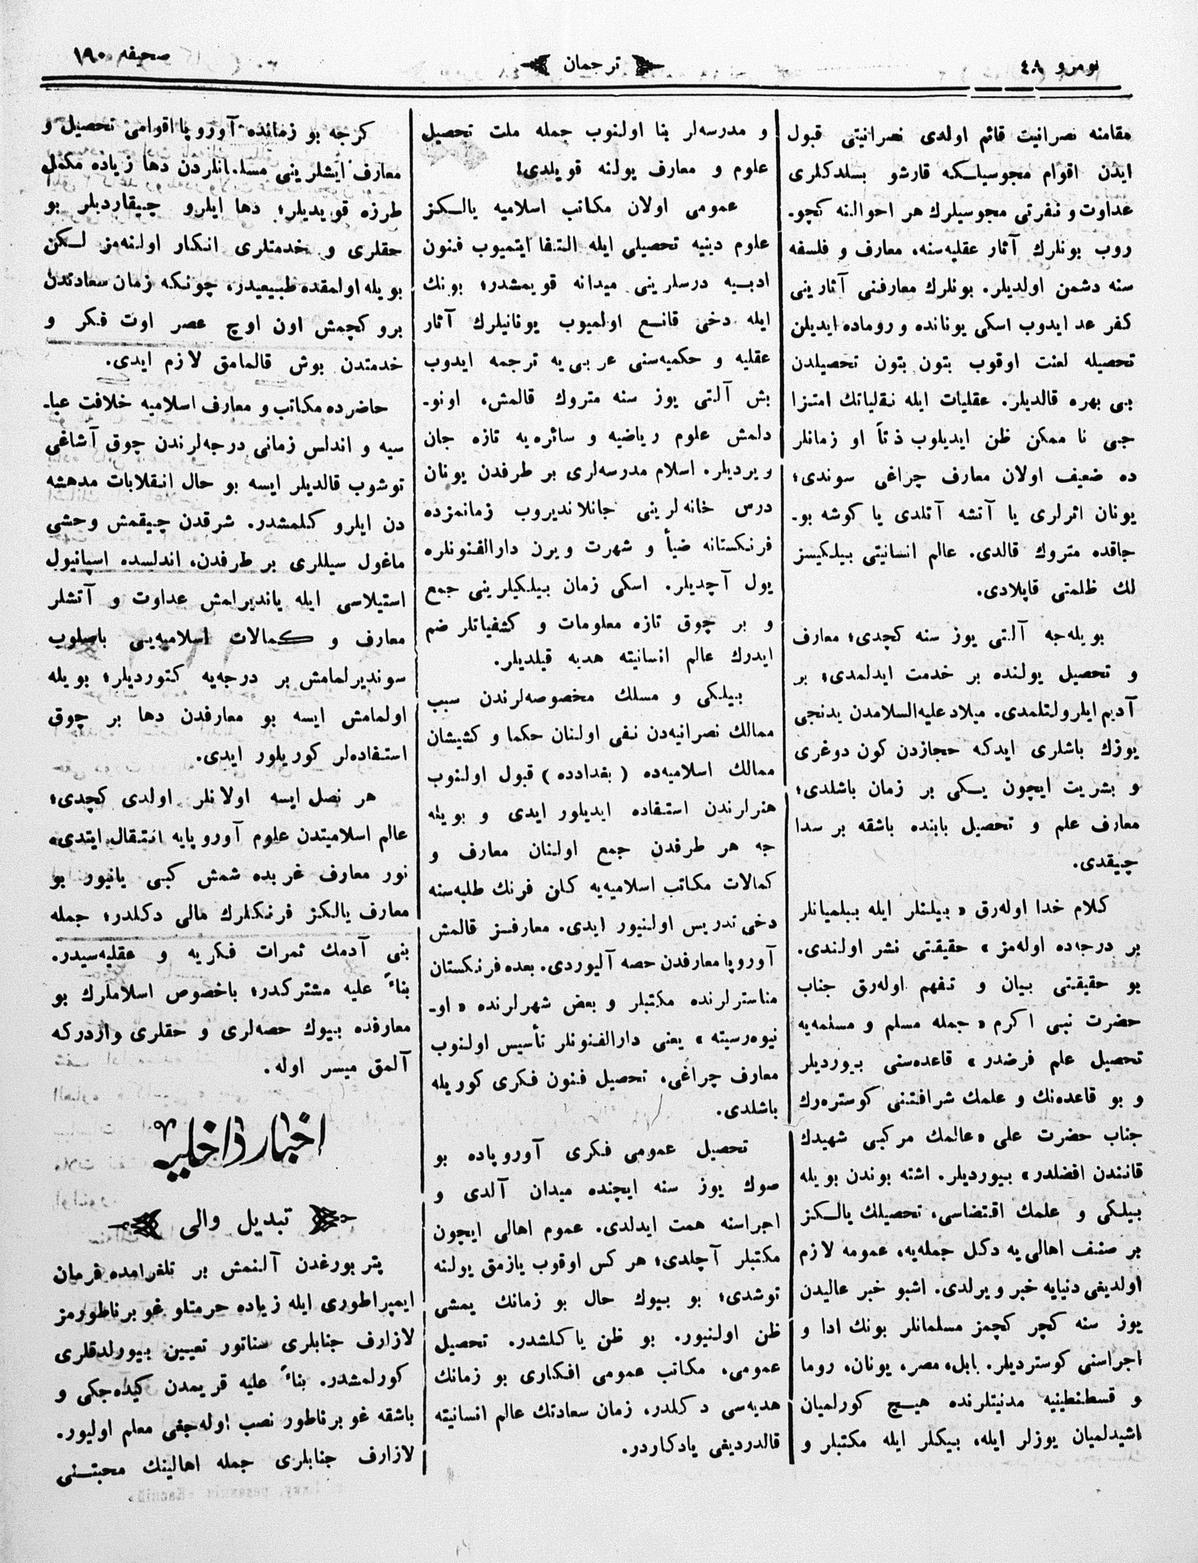 نومرو ٤٨
ترجمان
صحیفه ١٩٠
مقامنه نصرانیت قائم اولدی نصرانیتی قبول
ایدن اقوام مجوسیلکه قارشو بسلدکلری
عداوت و نفرتی مجوسیلرك هر احوالنه کچو۔
روب بونلرك آثار عقلیه‌سنه، معارف و فلسفه
سنه دشمن اولدیلر. بونلرك معارفنی آثارینی
کفر عد ایدوب اسکی یونانده و روماده ایدیلن
تحصیله لعنت اوقوب بتون بتون تحصیلدن
بی بهره قالدیلر. عقلیات ایله نقلیاتك امتزا
جی نا ممکن ظن ایدیلوب ذتاً او زمانلر
ده ضعیف اولان معارف چراغی سوندی؛
یونان اثرلری یا آتشه آتلدی یا کوشه بو۔
جاقده متروك قالدی. عالم انسانیتی بیلکیسز
لك ظلمتی قاپلادی.
بویله‌جه آلتی یوز سنه کچدی؛ معارف
و تحصیل یولنده بر خدمت ایدلمدی؛ بر
آدیم ایلرولتلمدی. میلاد علیه‌السلامدن یدنجی
یوزك باشلری ایدکه حجازدن کون دوغری
و بشریت ایچون یکی بر زمان باشلدی؛
معارف علم و تحصیل بابنده باشقه بر سدا
چیقدی.
کلام خدا اوله‌رق « بیلنلر ایله بیلمیانلر
بر درجه‌ده اوله‌مز » حقیقتی نشر اولندی.
بو حقیقتی بیان و تفهم اوله‌رق جناب
حضرت نبی اکرم « جمله مسلم و مسلمه‌یه
تحصیل علم فرضدر » قاعده‌سنی بیوردیلر
و بو قاعده‌نك و علمك شرافتنی کوستره‌رك
جناب حضرت علی « عالمك مرکبی شهیدك
قانندن افضلدر » بیوردیلر. اشته بوندن بویله
بیلکی و علمك اقتضاسی، تحصیلك یالکز
بر صنف اهالی‌یه دکل جمله‌یه، عمومه لازم
اولدیغی دنیایه خبر ویرلدی. اشبو خبر عالیدن
یوز سنه کچر کچمز مسلمانلر بونك ادا و
اجراسنی کوستردیلر. بابل، مصر، یونان، روما
و قسطنطینیه مدنیتلرنده هیچ کورلمیان
اشیدلمیان یوزلر ایله، بیکلر ایله مکتبلر و
و مدرسه‌لر بنا اولنوب جمله ملت تحصیل
علوم و معارف یولنه قویلدی!
عمومی اولان مکاتب اسلامیه یالکز
علوم دینیه تحصیلی ایله التفا ایتمیوب فنون
ادبیه درسلرینی میدانه قویمشدر؛ بونك
ایله دخی قانع اولمیوب یونانیلرك آثار
عقلیه و حکمیه‌سنی عربی‌یه ترجمه ایدوب
بش آلتی یوز سنه متروك قالمش، اونو۔
دلمش علوم ریاضیه و سائره‌یه تازه جان
ویردیلر. اسلام مدرسه‌لری بر طرفدن یونان
درس خانه‌لرینی جانلاندیروب زمانمزده
فرنکستانه ضیأ و شهرت ویرن دارالفنونلره
یول آچدیلر. اسکی زمان بیلکیلرینی جمع
و بر چوق تازه معلومات و کشفیاتلر ضم
ایدرك عالم انسانیته هدیه قیلدیلر.
بیلکی و مسلك مخصوصه‌لرندن سبب
ممالك نصرانیه‌دن نفی اولنان حکما و کشیشان
ممالك اسلامیه‌ده ( بغدادده ) قبول اولنوب
هنرلرندن استفاده ایدیلور ایدی و بویله
جه هر طرفدن جمع اولنان معارف و
کمالات مکاتب اسلامیه‌یه کلن فرنك طلبه‌سنه
دخی تدریس اولنیور ایدی. معارفسز قالمش
آوروپا معارفدن حصه آلیوردی. بعده فرنکستان
مناسترلرنده مکتبلر و بعض شهرلرنده « او۔
نیوه‌رسیته » یعنی دارالفنونلر تأسیس اولنوب
معارف چراغی، تحصیل فنون فکری کوریله
باشلدی.
تحصیل عمومی فکری آوروپاده بو
صوك یوز سنه ایچنده میدان آلدی و
اجراسنه همت ایدلدی. عموم اهالی ایچون
مکتبلر آچلدی؛ هر کس اوقوب یازمق یولنه
توشدی؛ بو بیوك حال بو زمانك یمشی
ظن اولنیور. بو ظن یاکلشدر. تحصیل
عمومی، مکاتب عمومی افکاری بو زمانك
هدیه‌سی دکلدر، زمان سعادتك عالم انسانیته
قالدردیغی یادکاردر.
کرچه بو زمانده آوروپا اقوامی تحصیل و
معارف ایشلرینی مسلمانلردن دها زیاده مکمل
طرزه قویدیلر؛ دها ایلرو چیقاردیلر بو
حقلری و خدمتلری انکار اولنه‌مز لکن
بویله اولمقده طبیعیدر، چونکه زمان سعادتدن
برو کچمش اون اوچ عصر اوت فکر و
خدمتدن بوش قالمامق لازم ایدی.
حاضرده مکاتب و معارف اسلامیه خلافت عبا۔
سیه و اندلس زمانی درجه‌لرندن چوق آشاغی
توشوب قالدیلر ایسه بو حال انقلابات مدهشه
دن ایلرو کلمشدر. شرقدن چیقمش وحشی
ماغول سیللری بر طرفدن، اندلسده اسپانیول
استیلاسی ایله یاندیرلمش عداوت و آتشلر
معارف و کمالات اسلامیه‌یی باصلوب
سوندیرلمامش بر درجه‌یه کتوردیلر؛ بویله
اولمامش ایسه بو معارفدن دها بر چوق
استفاده‌لر کوریلور ایدی.
هر نصل ایسه اولانلر اولدی کچدی؛
عالم اسلامیتدن علوم آوروپایه انتقال ایتدی،
نور معارف غربده شمش کبی یانیور بو
معارف یالکز فرنکلرك مالی دکلدر؛ جمله
بنی آدمك ثمرات فکریه و عقلیه‌سیدر.
بناءً علیه مشترکدر؛ باخصوص اسلاملرك بو
معارفده بیوك حصه‌لری و حقلری واردرکه
آلمق میسر اوله.
اخبار داخلیه
تبدیل والی
پتربورغدن آلنمش بر تلغرامده فرمان
ایمپراطوری ایله زیاده حرمتلو غوبرناطورمز
لازارف جنابلری سناتور تعیین بیورلدقلری
کورلمشدر. بناءً علیه قریمدن کیده‌جکی و
باشقه غوبرناطور نصب اوله‌جغی معلم اولیور.
لازارف جنابلری جمله اهالینك محبتنی